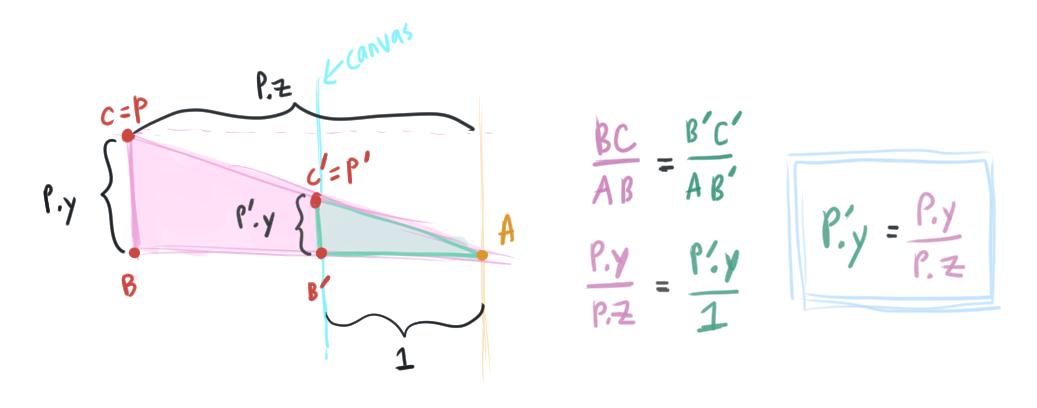 canvas
P.z
C=P
C'=P'
P.y
P'.y
A
B
B'
1
BC/AB = B'C'/AB'
P.y/P.z = P'.y/1
P'.y = P.y/P.z